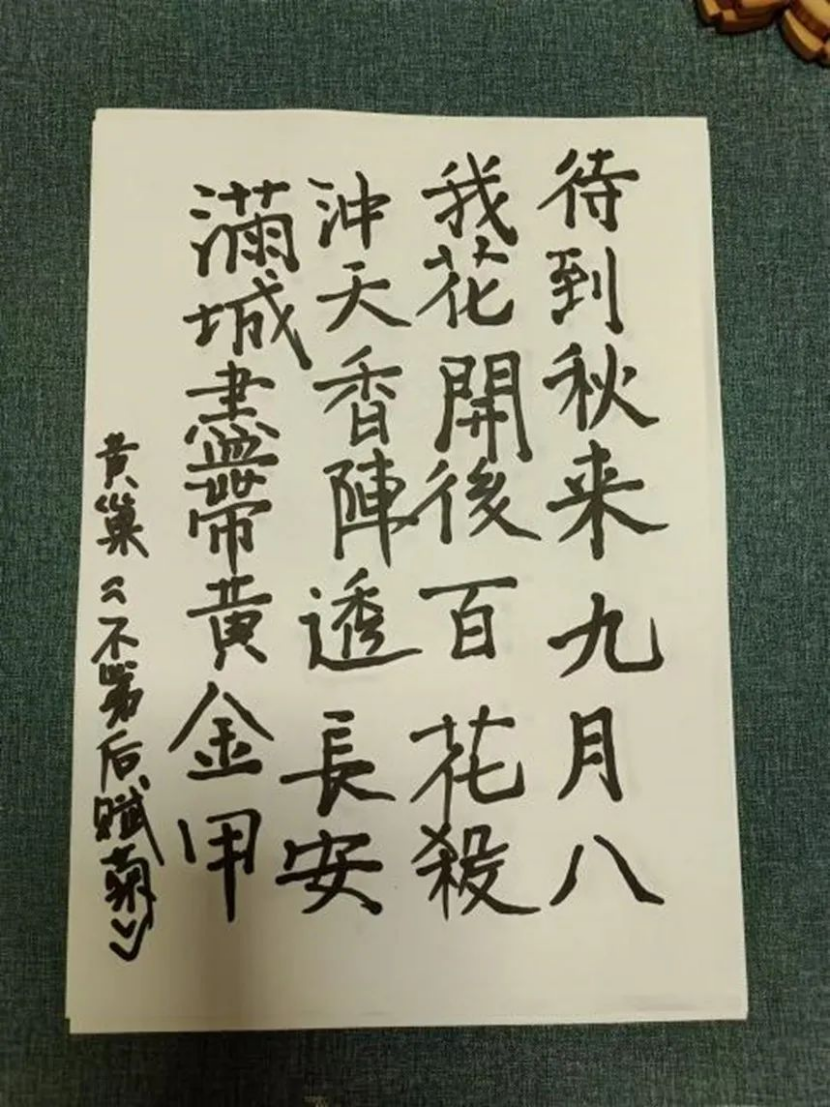 待到秋来九月八
我花開後百花殺
沖天香陣透長安
滿城盡帶黄金甲
黄巢《不第后赋菊》